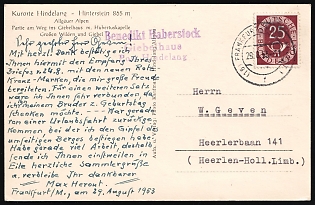 Kurorte Hindelang - Hinterstein 865 m
Allgäuer Alpen
Partie am Weg ins Giebelhaus m. Hubertuskapelle
Großen Wilden und Giebel
Benedikt Haberstock
Giebelhaus
Hindelang
DEUTSCHE
25
Sehr geehrter Herr
Mit herzl. Dank bestätige ich
Ihnen hiermit den Empfang Ihres
Briefes v. 24.8. mit den neuen Rotkreuz-
Marken, die mir große Freude
bereiteten. Für einen weiteren Satz
wäre ich Ihnen sehr verbunden, da
ich meinem Bruder z. Geburtstag
schenken möchte. --- War gerade
von einer Urlaubsfahrt zurückge-
kommen bei der ich den Gipfel des
umseitigen Berges bestiegen habe.
Habe gerade viel Arbeit, deshalb
sende ich Ihnen einstweilen in
Eile herzliche Sammlergrüße
u. verbleibe Ihr dankbarer
Max Herout.
Frankfurt/M., am 29. August 1953
Herrn
W. Geven
Heerlerbaan 141
(Heerlen-Holl.Limb.)